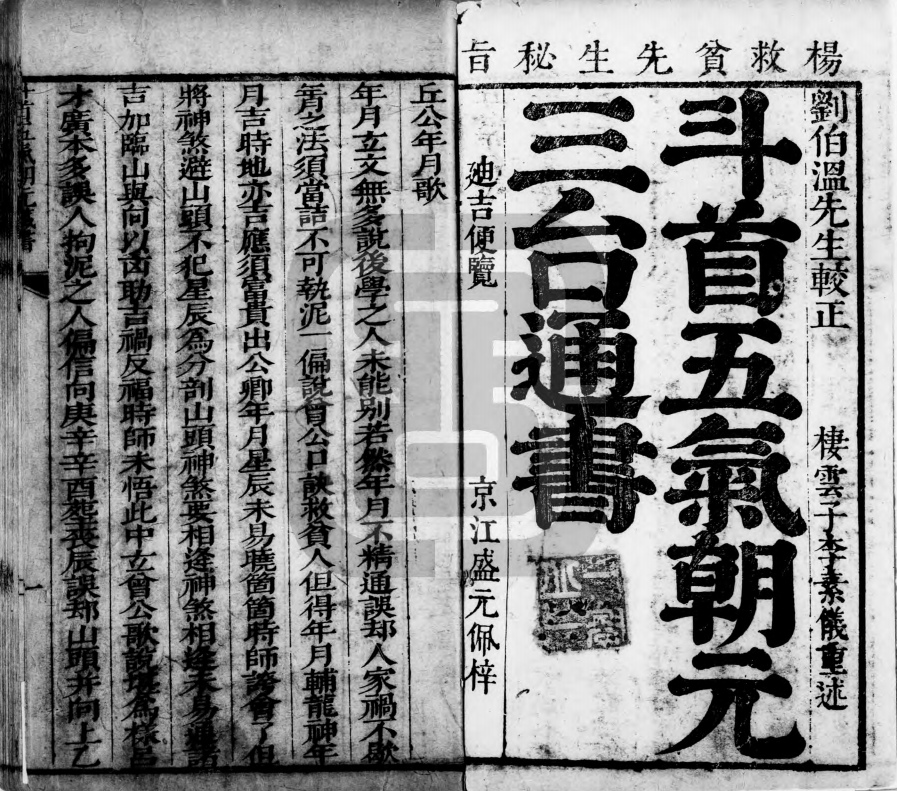 楊救貧先生秘旨
劉伯溫先生較正 棲雲子李素儀重述
斗首五氣朝元
三台通書
廸吉便覽 京江盛元佩梓
丘公年月歌
年月立文無多說後學之人未能別若然年月不精通誤却人家禍不歇
年之法須當詰不可執泥一偏說曾公口訣救貧人但得年月輔龍神年
月吉時地亦吉應須富貴出公卿年月星辰未易曉箇箇時師誇會了但
將神煞避山頭不犯星辰為分剖山頭神煞要相逢神煞相逢未易通諸
吉加臨山與向以凶助吉禍反福時師未悟此中立曾公歌說堪為
才廣本多誤人拘泥之人偏信向庚辛辛酉葬喪辰誤却山頭并向上乙